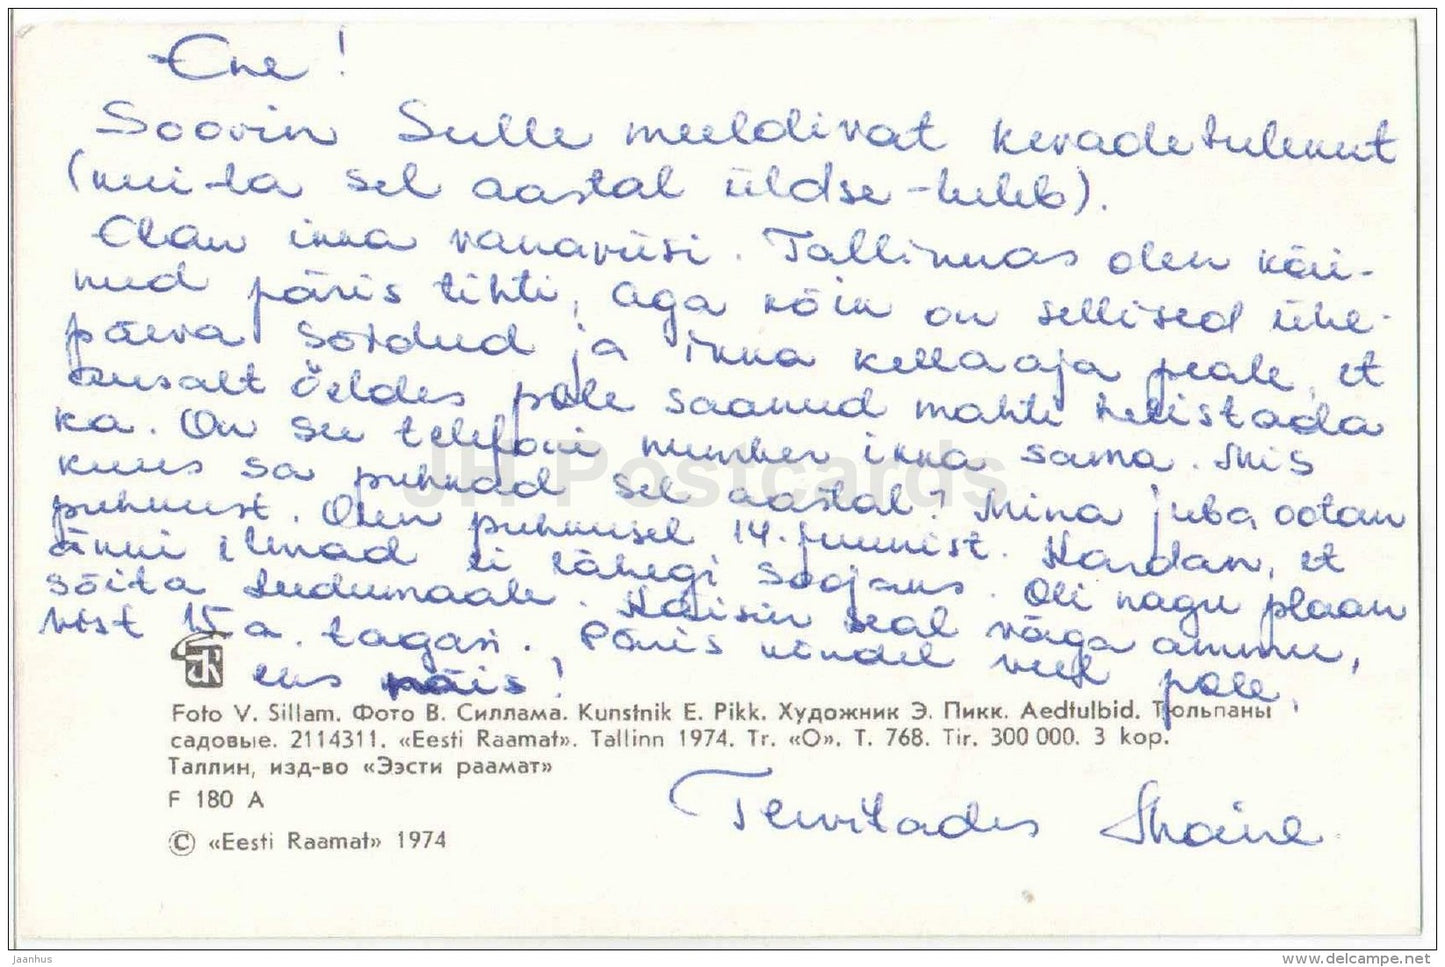 Ene!
Soovin Sulle meeldivat kevadetulekut
(kui ta sel aastal üldse tuleb).
Elan ikka vanaviisi. Tallinnas olen käi-
nud päris tihti, aga kõik on sellised ühe-
päeva sõidud ja ikka kellaaja peale, et
ausalt öeldes pole saanud mahti helistada
ka. On su telefoni number ikka sama. Mis
kuus sa puhkad sel aastal? Mina juba ootan
puhkust. Olen puhkusel 14. juunist. Kardan, et
änni ilmad ei lähegi soojaks. Oli nagu plaan
sõita Leedumaale. Käisin seal väga ammu,
vist 15 a. tagasi. Päris kindel veel pole,
eks näis!
Foto V. Sillam. Фото В. Силлама. Kunstnik E. Pikk. Художник Э. Пикк. Aedtulbid. Тюльпаны
садовые. 2114311. «Eesti Raamat». Tallinn 1974. Tr. «O». T. 768. Tir. 300 000. 3 kop.
Таллин, изд-во «Ээсти раамат»
F 180 A
Tervitades
© «Eesti Raamat» 1974
JH Postcards
jaanhus
www.delcampe.net